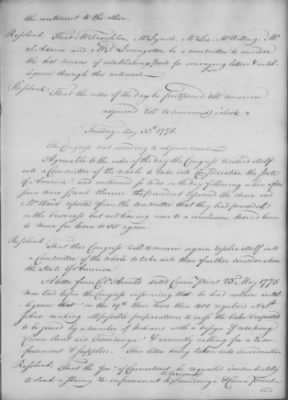 the continent to the other.
Resolved. That Mr Franklin, Mr Lynch, Mr Lee, Mr Willing, Mr
S. Adams and Mr Livingston be a committee to consider
the best means of establishing posts for conveying letters & intel-
ligence through this continent.
Resolved. That the order of the day be postponed till tomorrow
adjourned till to morrow at 9 o'clock.
Tuesday May 30th 1775.
The Congress met according to adjournment.
Agreeable to the order of the day the Congress resolved itself
into a Committee of the whole to take into Consideration the State
of America; and continued so to do on the day following when after
some time spent therein the president resumed the chair and
Mr Ward reported from the committee that they had proceeded
in the business but not having come to a conclusion desired him
to move for leave to sit again.
Resolved That this Congress will to morrow again resolve itself into
a Committee of the whole to take into their farther consideration
the State of America
A letter from Col. Arnold dated Crown Point 23d May 1775
was laid before the Congress informing that he had certain intel-
ligence that on the 19th there were then 400 regulars at St
John's making all possible preparations to cross the lake & expected
to be joined by a number of Indians with a design of retaking
Crown Point and Ticonderoga & earnestly calling for a rein-
forcement & supplies. This letter being taken into consideration
Resolved That the Govr of Connecticut be requested immediately
to send a strong reinforcement to Ticonderoga & Crown Point